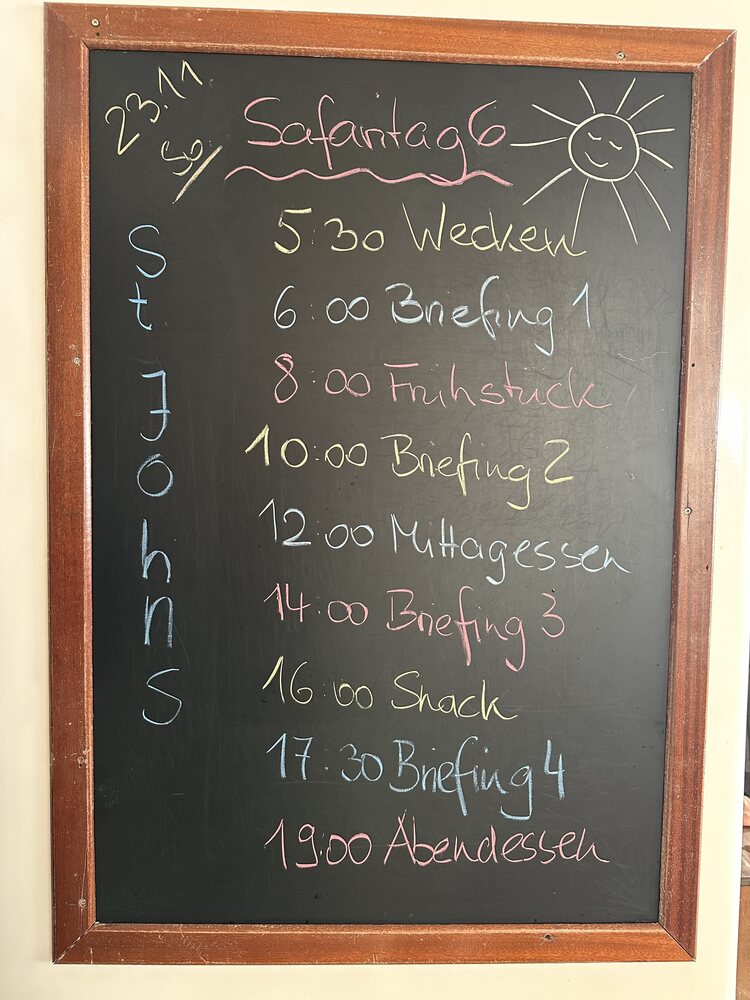 23.11
So.
Safaritag 6
St Johns
5:30 Wecken
6:00 Briefing 1
8:00 Frühstück
10:00 Briefing 2
12:00 Mittagessen
14:00 Briefing 3
16:00 Snack
17:30 Briefing 4
19:00 Abendessen